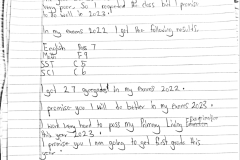 very poor. So I repeated the class but I promise
to do well in 2023.
In my exams 2022 I got the following results.
English Ps 7
Math F 9
SST C 5
SCI C 6
I got 27 aggregated in my exams 2022.
I promise you I will do better in my exams 2023.
I work very hard to pass my Primary Living Examination
this year 2023.
I promise you I am going to get first grade this
year